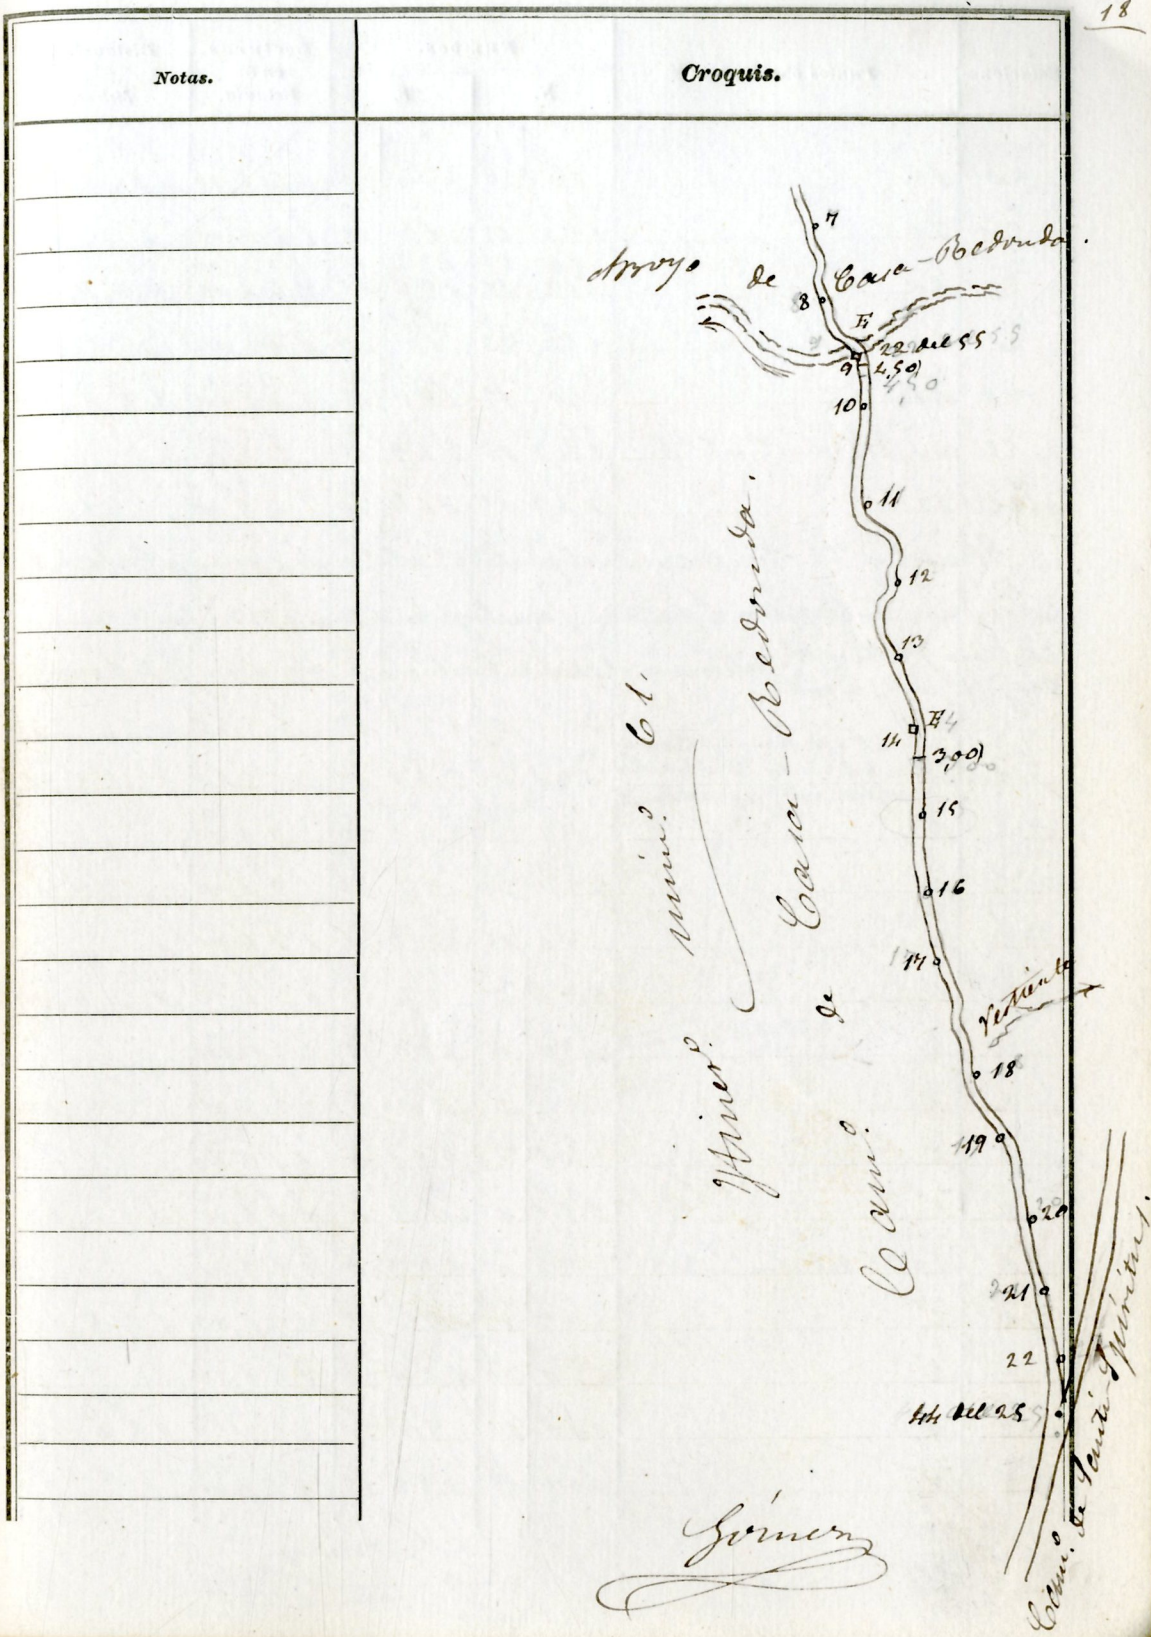 18
Notas. Croquis.
7
Arroyo de Casa-Redonda.
8
E
22 del 55
9 4,50)
10
11
12
13
E
14
3,00)
15
16
17
Vertiente
18
19
20
21
22
44 del 25
Itiner.º núm.º 61.
Cam.º de Casa-Redonda.
Cam.º de Santi-Spíritus.
Gómez